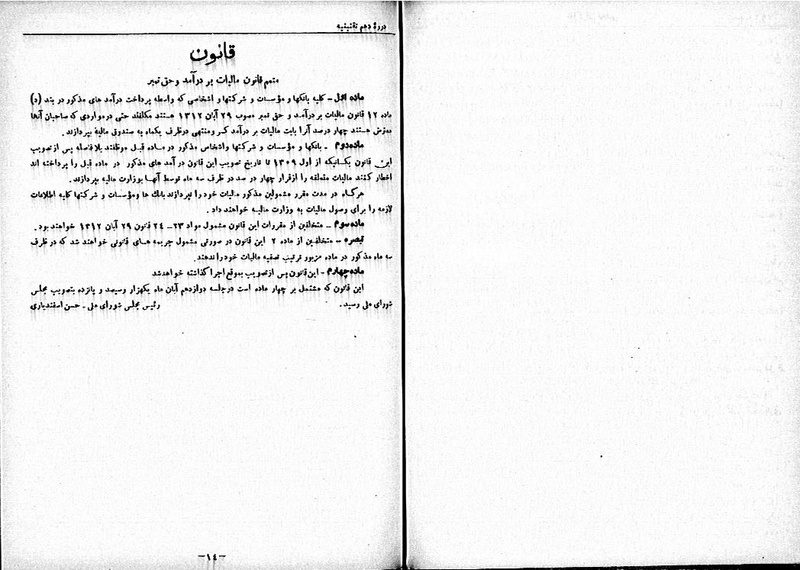 دورهٔ دهم تقنینیه
قانون
متمم قانون مالیات بر درآمد و حق تمبر
ماده اول - کلیه بانکها و مؤسسات و شرکتها و اشخاصی که واسطه پرداخت درآمد های مذکور در بند (د)
ماده ۱۲ قانون مالیات بر درآمد و حق تمبر مصوب ۲۹ آبان ۱۳۱۲ هستند مکلفند حتی در مواردی که صاحبان آنها
مقروض هستند چهار درصد آنرا بابت مالیات بر درآمد کسر و منتهی در ظرف یکماه به صندوق مالیهٔ بپردازند.
ماده دوم - بانکها و مؤسسات و شرکتها و اشخاص مذکور در ماده قبل موظفند بلافاصله پس از تصویب
این قانون بکسانیکه از اول ۱۳۰۹ تا تاریخ تصویب این قانون درآمد های مذکور در ماده قبل را پرداخته اند
اخطار کنند مالیات متعلقه را از قرار چهار در صد در ظرف سه ماه توسط آنها بوزارت مالیه بپردازند.
هرگاه در مدت مقرر مشمولین مذکور مالیات خود را نپردازند بانك ها و مؤسسات و شرکتها کلیه اطلاعات
لازمه را برای وصول مالیات به وزارت مالیه خواهند داد.
ماده سوم - متخلفین از مقررات این قانون مشمول مواد ۲۳-۲۴ قانون ۲۹ آبان ۱۳۱۲ خواهند بود.
تبصره - متخلفین از ماده ۲ این قانون در صورتی مشمول جریمه های قانونی خواهند شد که در ظرف
سه ماه مذکور در ماده مزبور ترتیب تصفیه مالیات خود را ندهند.
ماده چهارم - این قانون پس از تصویب بموقع اجرا گذاشته خواهد شد
این قانون که مشتمل بر چهار ماده است در جلسه دوازدهم آبان ماه یکهزار و سیصد و پانزده بتصویب مجلس
شورای ملی رسید. رئیس مجلس شورای ملی - حسن اسفندیاری
-۱٤-